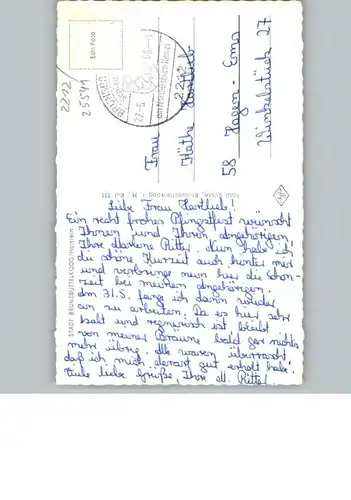 Echt Foto
2212
25541
22.-5.
am Nord-Ostsee-Kanal
2212
Frau
Käthe Hartlieb
58 Hagem-Emst
Winkelstück 27
STADT BRUNSBÜTTELKOOG/Holstein
Liebe Frau Hartlieb!
Ein recht frohes Pfingstfest wünscht
Ihnen und Ihren Angehörigen
Ihre Marlene Ritter. Nun habe ich
die schöne Kurzeit auch hinter mir
und verbringe nun hier die Schon-
zeit bei meinen Angehörigen.
Am 31.5. fange ich dann wieder
an zu arbeiten. Da es hier sehr
kalt und regnerisch ist, bleibt
von meiner Bräune bald gar nichts
mehr übrig. Alle waren überrascht,
daß ich mich derart gut erholt habe.
Viele liebe Grüße, Ihre M. Ritter